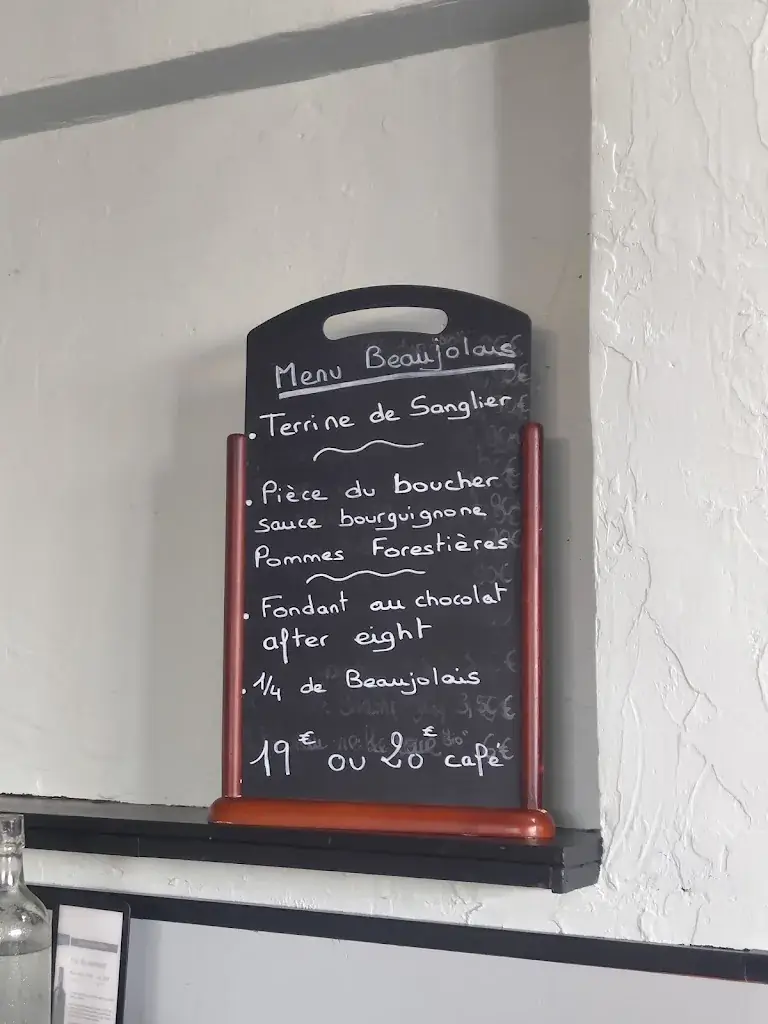 Menu Beaujolais
. Terrine de Sanglier
. Pièce du boucher
sauce bourguignone
Pommes Forestières
. Fondant au chocolat
after eight
. 1/4 de Beaujolais
19€ ou 20€ café